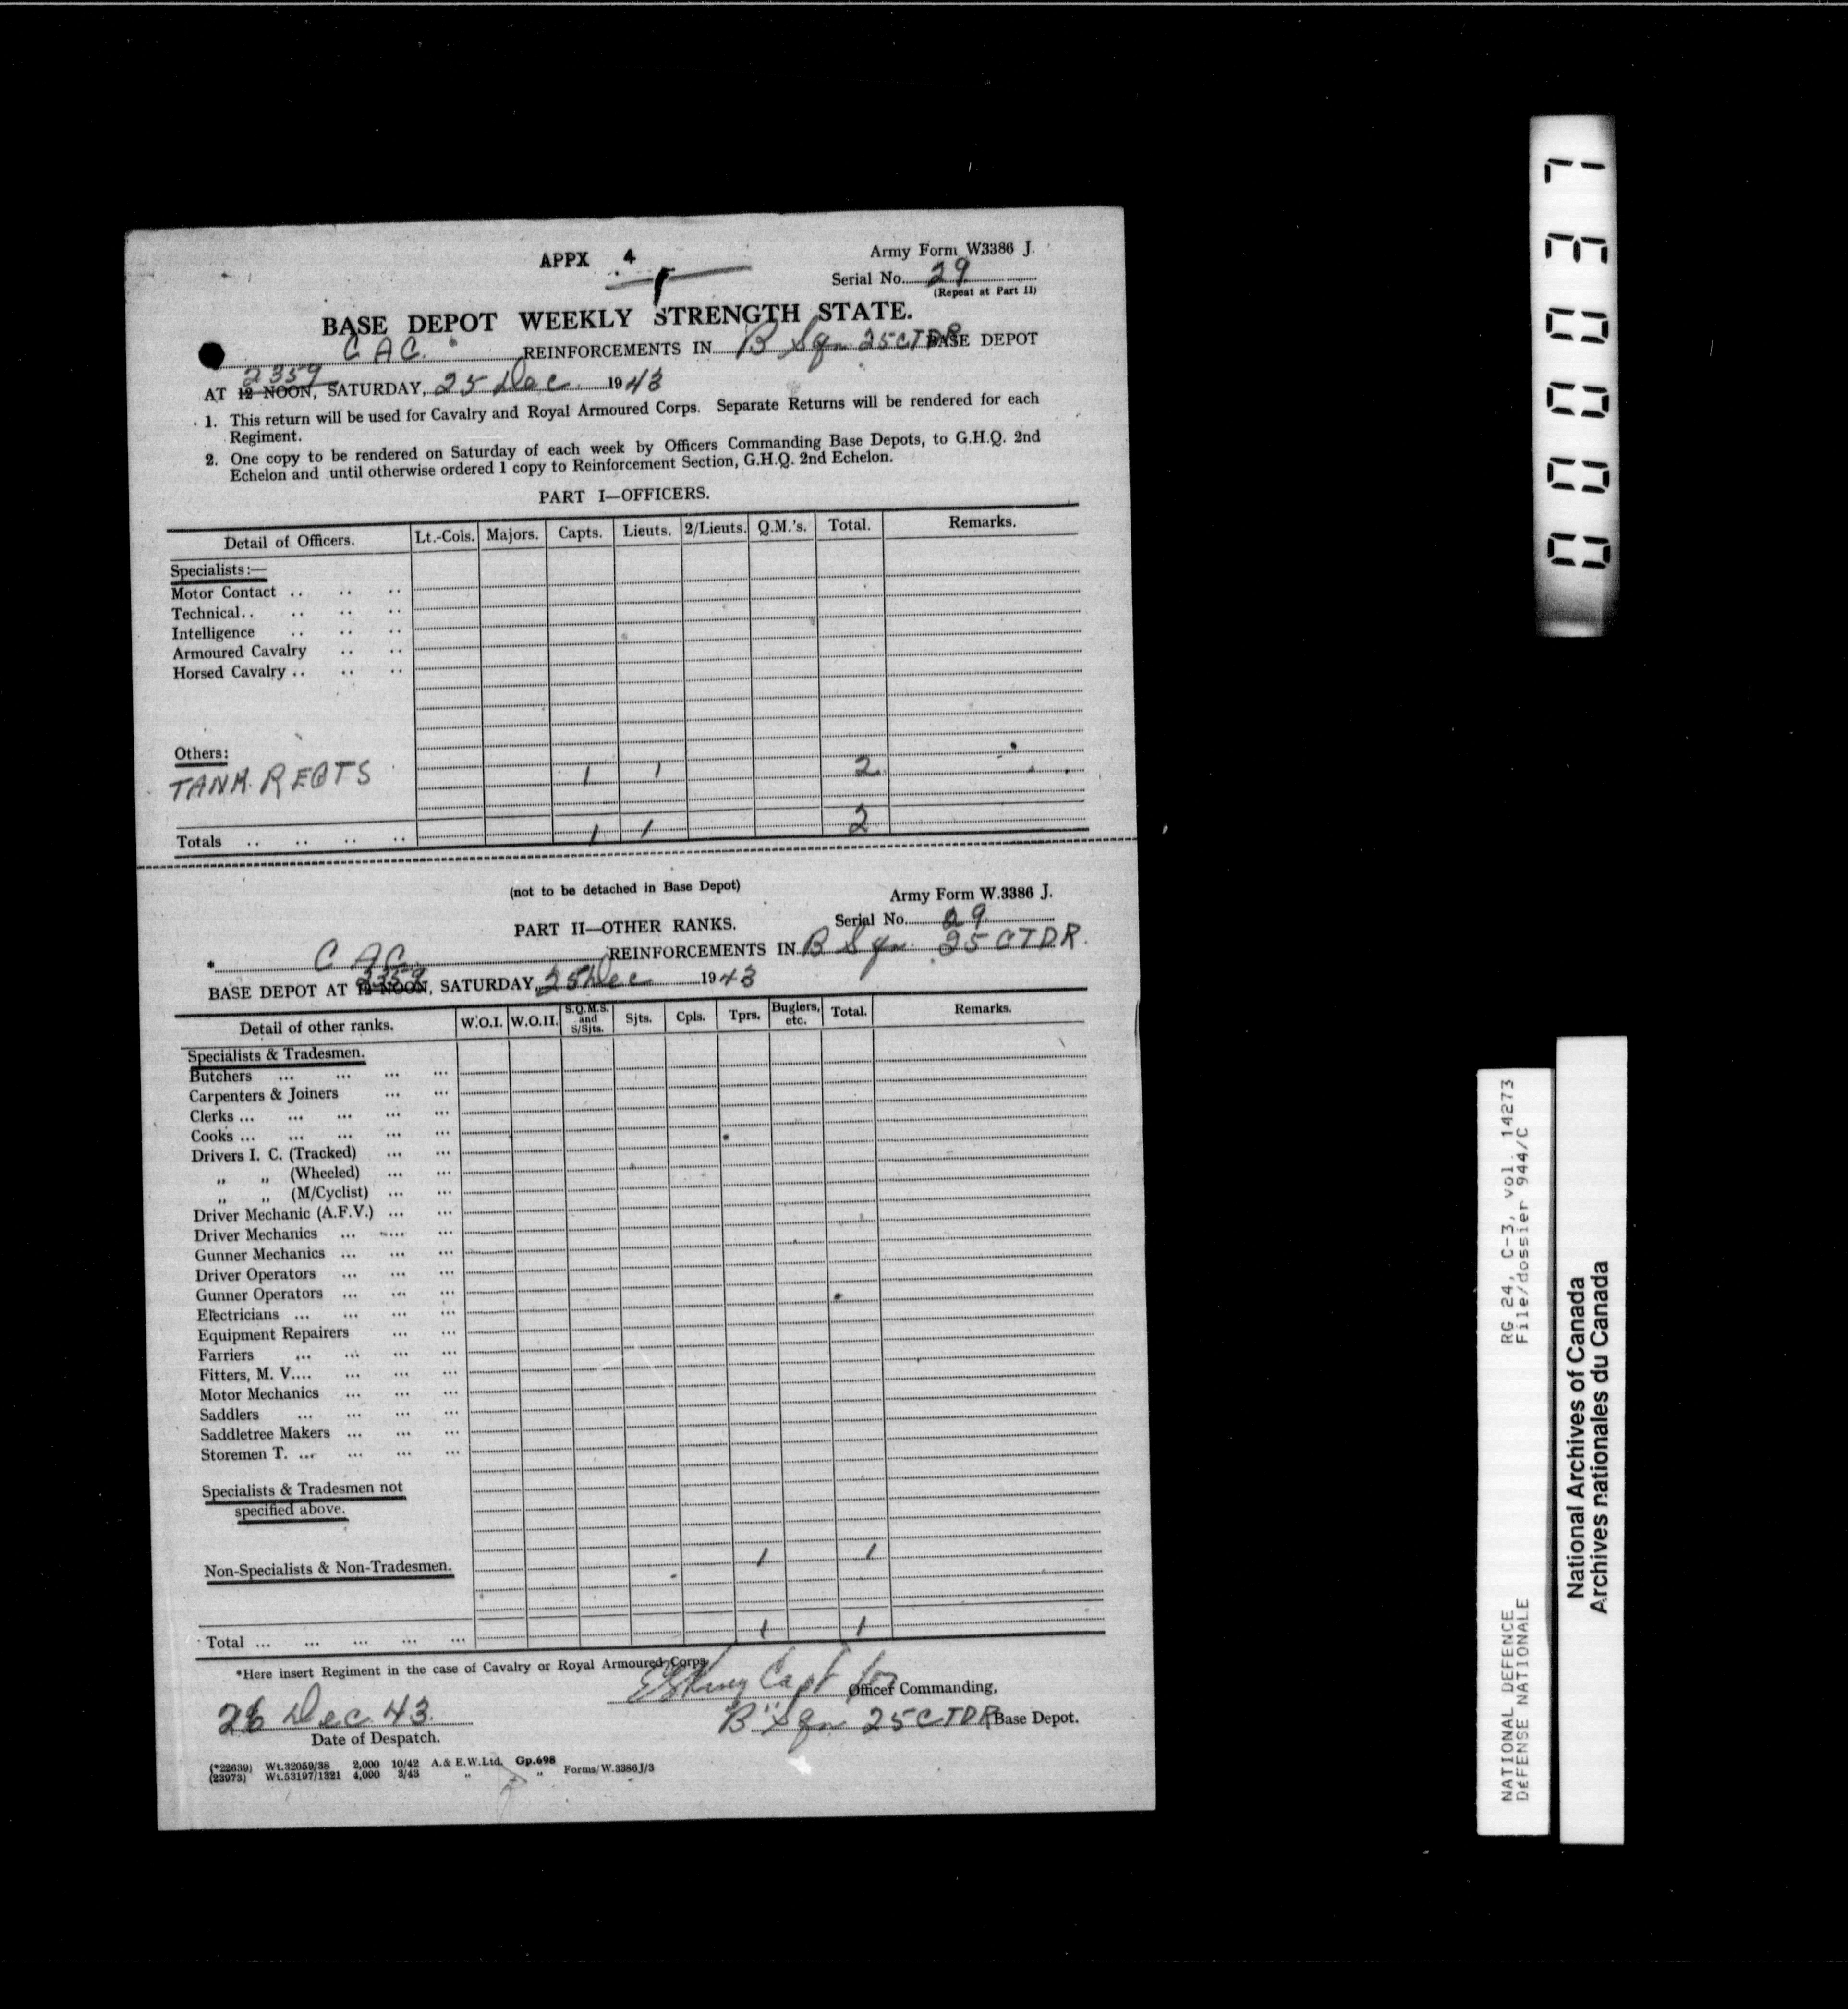 APPX 4
Army Form W3386 J.
Serial No. 29
(Repeat at Part II)
BASE DEPOT WEEKLY STRENGTH STATE.
C A C. REINFORCEMENTS IN B Sqn 25 CTDR BASE DEPOT
2359
AT 12 NOON, SATURDAY, 25 Dec 1943
1. This return will be used for Cavalry and Royal Armoured Corps. Separate Returns will be rendered for each
Regiment.
2. One copy to be rendered on Saturday of each week by Officers Commanding Base Depots, to G.H.Q. 2nd
Echelon and until otherwise ordered 1 copy to Reinforcement Section, G.H.Q. 2nd Echelon.
PART I—OFFICERS.
Detail of Officers. Lt.-Cols. Majors. Capts. Lieuts. 2/Lieuts. Q.M.'s. Total. Remarks.
Specialists:—
Motor Contact .. .. ..
Technical.. .. .. ..
Intelligence .. .. ..
Armoured Cavalry .. ..
Horsed Cavalry .. .. ..
Others:
TANK REGTS 1 1 2
Totals .. .. .. .. 1 1 2
(not to be detached in Base Depot)
Army Form W.3386 J.
PART II—OTHER RANKS.
Serial No. 29
* C A C. REINFORCEMENTS IN B Sqn. 25 CTDR.
2359
BASE DEPOT AT 12 NOON, SATURDAY, 25 Dec 1943
Detail of other ranks. W.O.I. W.O.II. S.Q.M.S. and S/Sjts. Sjts. Cpls. Tprs. Buglers, etc. Total. Remarks.
Specialists & Tradesmen.
Butchers ... ... ... ...
Carpenters & Joiners ... ...
Clerks ... ... ... ... ...
Cooks ... ... ... ... ...
Drivers I. C. (Tracked) ... ...
„ „ (Wheeled) ... ...
„ „ (M/Cyclist) ... ...
Driver Mechanic (A.F.V.) ... ...
Driver Mechanics ... ... ...
Gunner Mechanics ... ... ...
Driver Operators ... ... ...
Gunner Operators ... ... ...
Electricians ... ... ... ...
Equipment Repairers ... ...
Farriers ... ... ... ...
Fitters, M. V.... ... ... ...
Motor Mechanics ... ... ...
Saddlers ... ... ... ...
Saddletree Makers ... ... ...
Storemen T. ... ... ... ...
Specialists & Tradesmen not
specified above.
Non-Specialists & Non-Tradesmen. 1 1
Total ... ... ... ... ... 1 1
*Here insert Regiment in the case of Cavalry or Royal Armoured Corps.
Capt for Officer Commanding,
26 Dec. 43. "B" Sqn 25 CTDR Base Depot.
Date of Despatch.
(*22639) Wt.32059/38 2,000 10/42 A.& E.W.Ltd. Gp.698
(23973) Wt.53197/1321 4,000 3/43 „ „ Forms/W.3386J/3
00037
RG 24, C-3, vol. 14273
File/dossier 944/C
NATIONAL DEFENCE
DÉFENSE NATIONALE
National Archives of Canada
Archives nationales du Canada